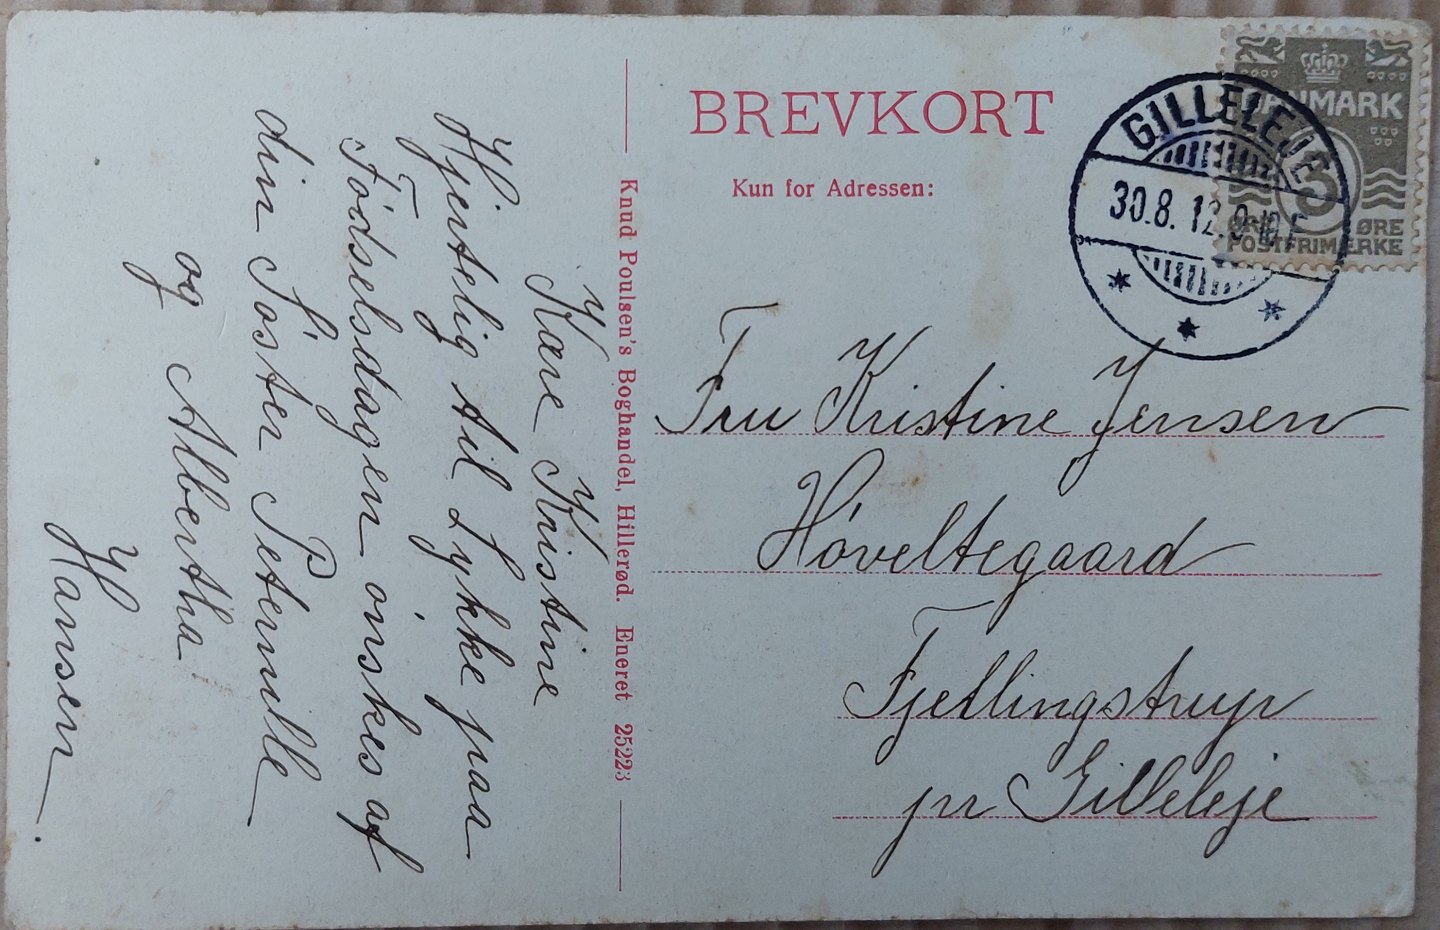 BREVKORT
Kun for Adressen:
GILLELEJE
30.8.12.9-10 F
DANMARK
3
ØRE ØRE
POSTFRIMÆRKE
Fru Kristine Jensen
Høveltegaard
Fjellingstrup
pr Gilleleje
Knud Poulsen's Boghandel, Hillerød. Eneret 25223
Kære Kristine
Hjertelig til Lykke paa
Fødselsdagen ønskes af
din Søster Peternille
og Albertha
Hansen.